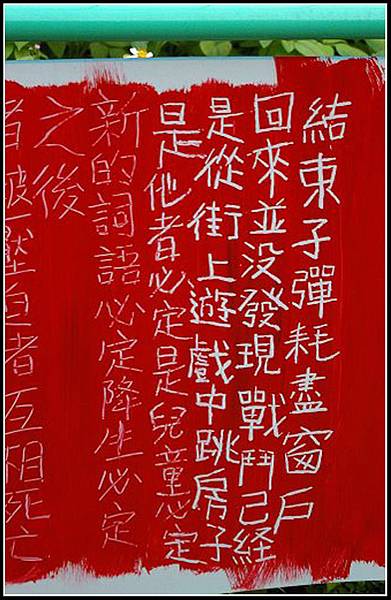 結束子彈耗盡窗戶
回來並没發現戰鬥己経
是從街上遊戲中跳房子
是他者必定是兒童必定
新的詞語必定降生必定
之後
者被壓迫者互相死亡